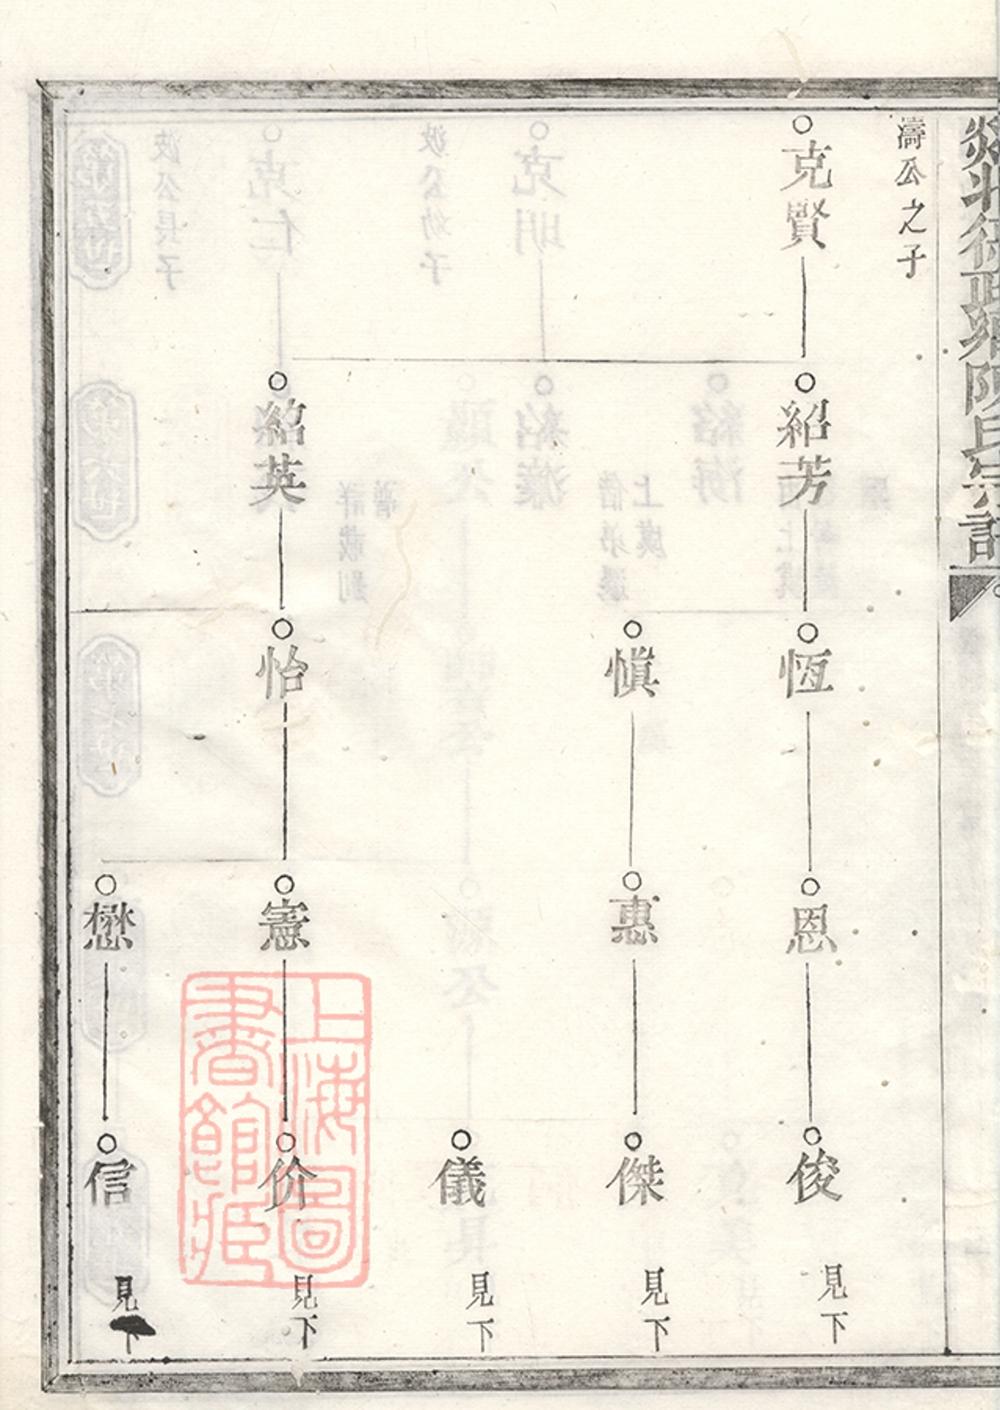 濤公之子
克賢
紹芳
紹英
恆
慎
怡
恩
惠
憲
懋
俊
傑
儀
价
信
見下
見下
見下
見下
見下
上海圖
書館藏